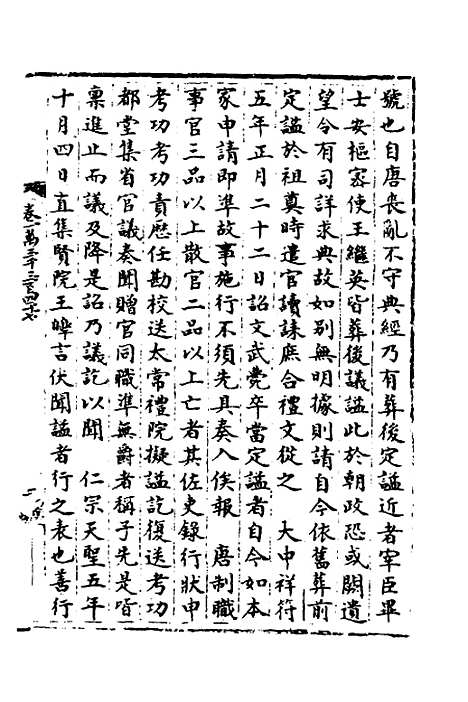 號也自唐喪亂不守典經乃有葬後定謚近者宰臣畢
士安樞密使王繼英皆葬後議謚此於朝政恐或闕遺
望令有司詳求典故如别無明據則請自今依舊葬前
定謚於祖奠時遣官讀誄庶合禮文從之　大中祥符
五年正月二十二日詔文武薨卒當定謚者自今如本
家申請即準故事施行不須先具奏入俟報　唐制職
事官三品以上散官二品以上亡者其佐吏錄行狀申
考功考功責歷任勘校送太常禮院擬謚訖復送考功
都堂集省官議奏聞贈官同職準無爵者稱子先是皆
稟進止而議及降是詔乃議訖以聞　仁宗天聖五年
十月四日直集賢院王皞言伏聞謚者行之表也善行
卷一萬三千三百四十七